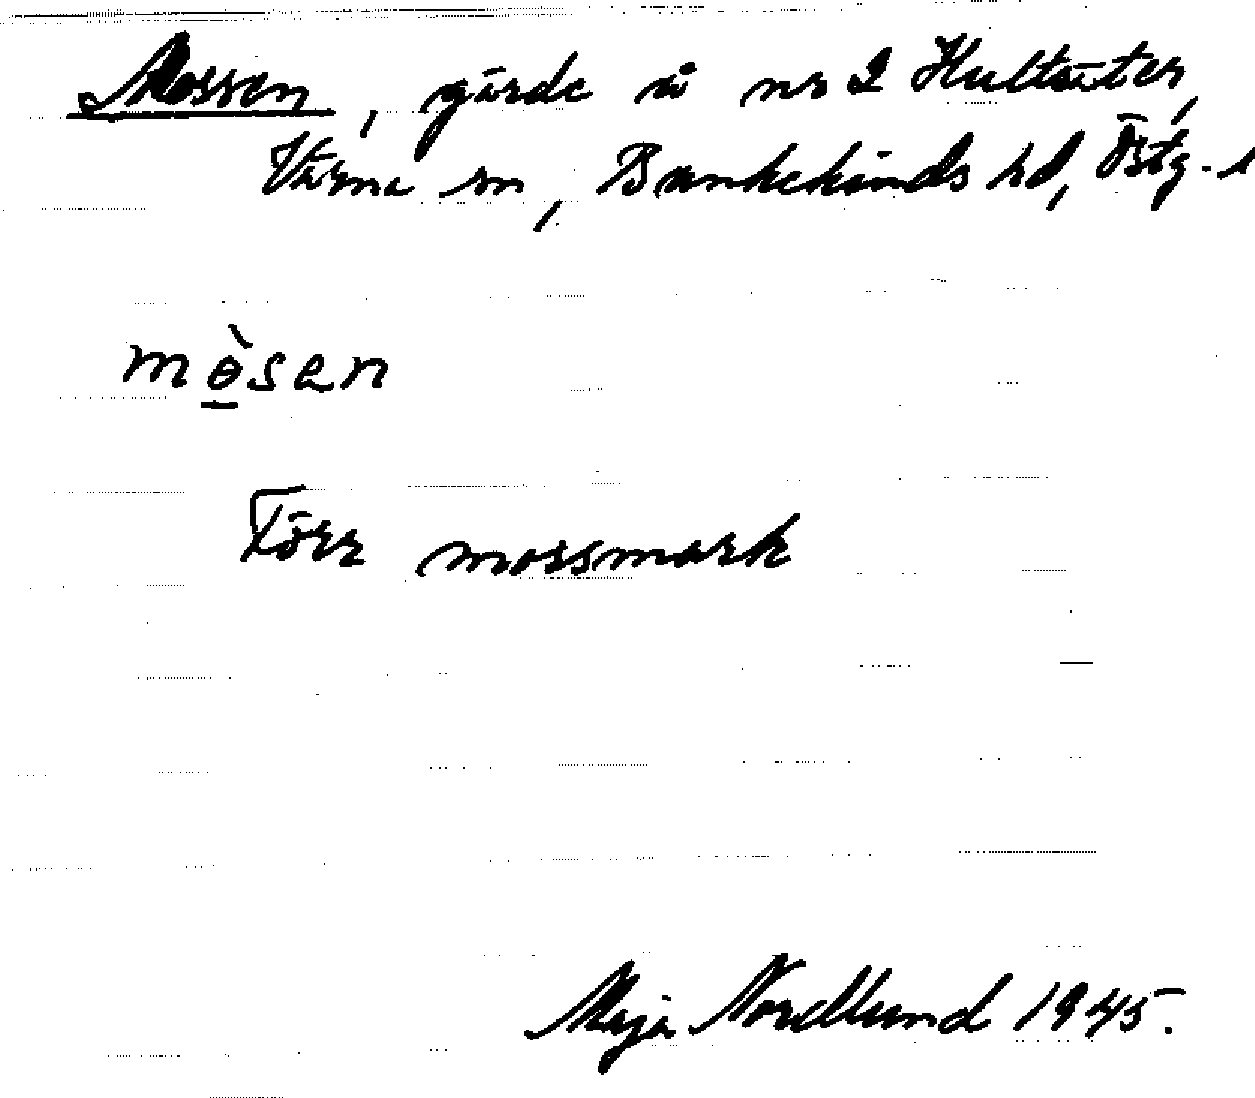 Mossen, gärde å nr 2 Hultsäter,
Värna sn, Bankekinds hd, Östg. l
mȯ̱̀san
Förr mossmark
Maja Nordlund 1945.